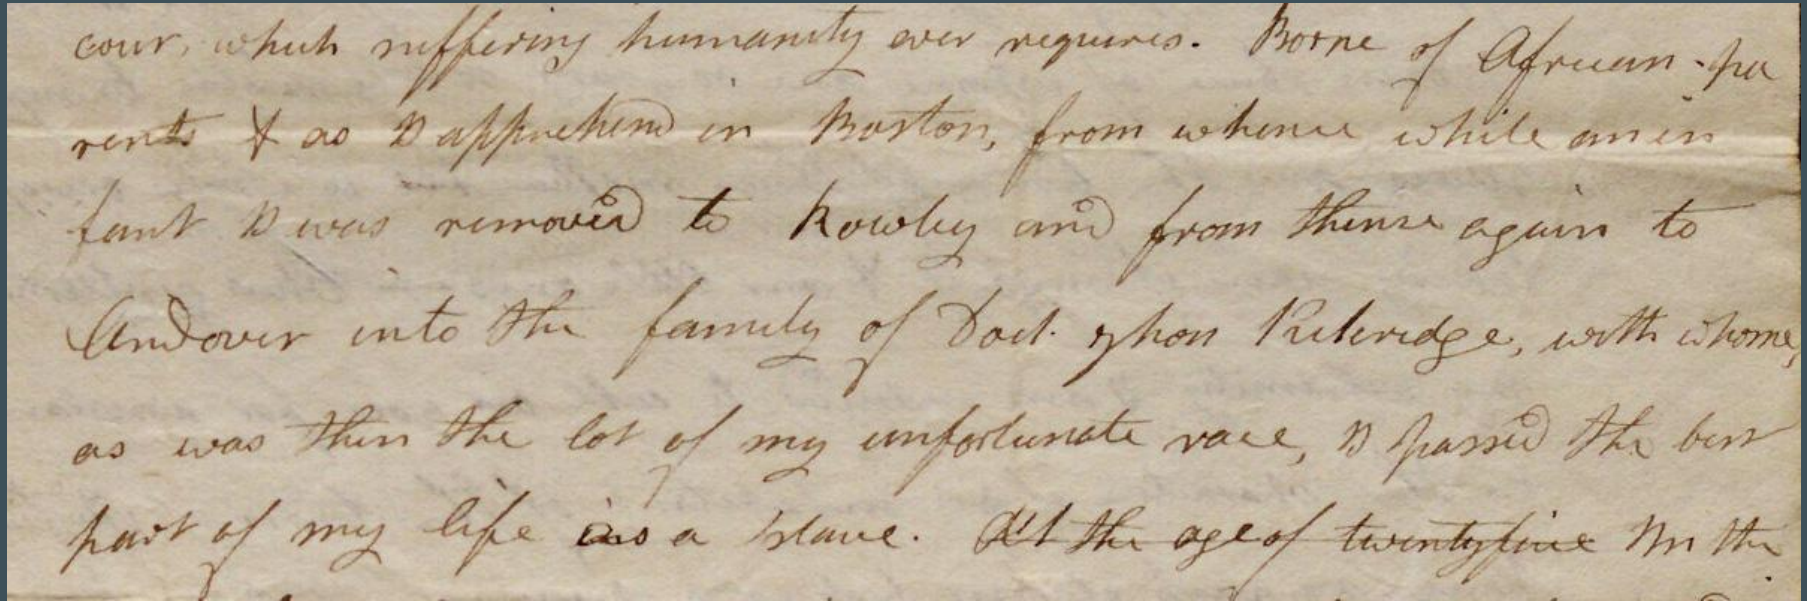 cour, which suffering humanity ever requires. Borne of African pa
rents & as I apprehend in Boston, from whence while an in
fant I was removed to Rowley and from thense again to
Andover into the family of Doct. Jhon Kiteridge, with whome,
as was then the lot of my unfortunate race, I passed the best
part of my life as a slave. At the age of twentyfive In the